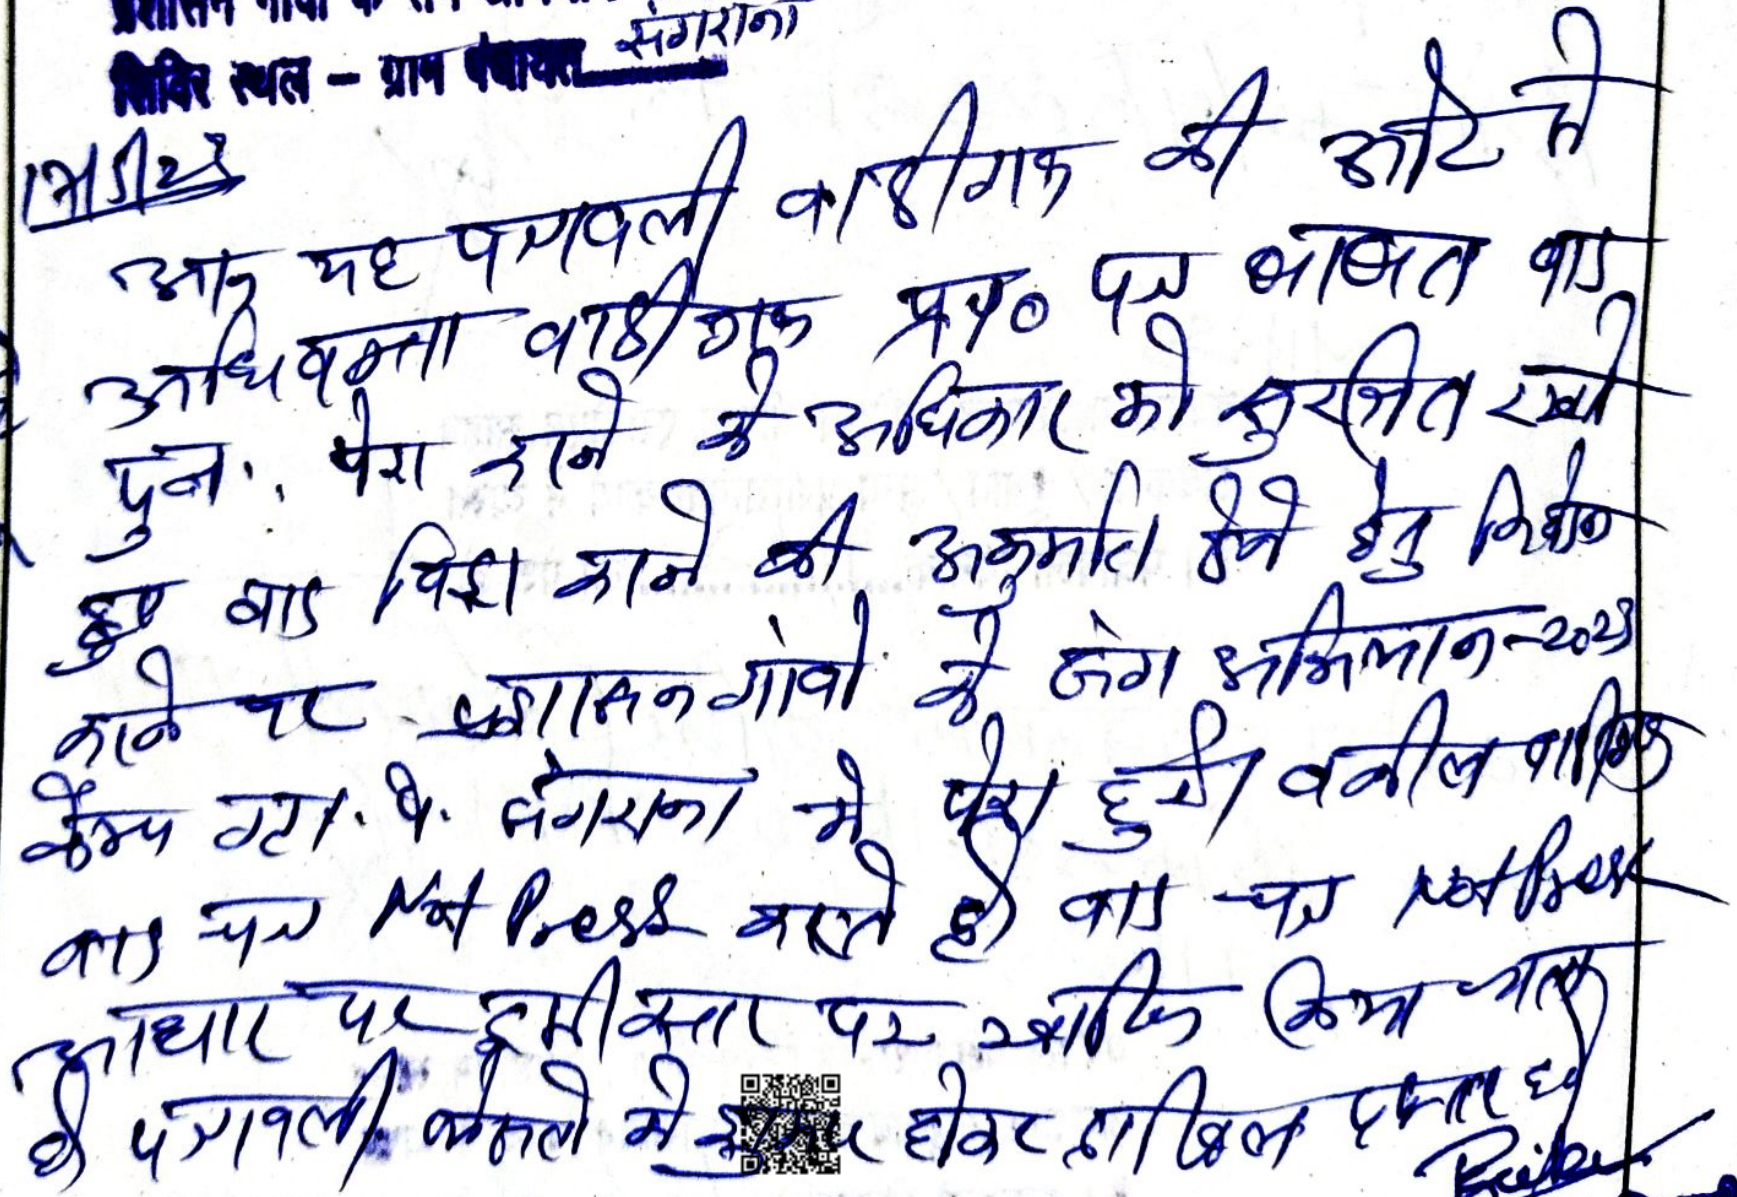 प्रशासन गांवों के संग
शिविर स्थल – ग्राम पंचायत संगराना
आज यह पत्रावली वादीगण की ओर से
अधिवक्ता वादीगण प्रा० पत्र बाबत वाद
पुनः पेश करने के अधिकार को सुरक्षित रखते
हुए वाद विड्रा करने की अनुमति देने हेतु निवेदन
करने पर प्रशासन गांवो के संग अभियान-2023
कैम्प ग्रा. पं. संगराना मे पेश हुई। वकील वादीगण
वाद पत्र Not Press करते है। वाद पत्र Not Press
आधार पर इसी स्तर पर खारिज किया जाता
है पत्रावली फैसले मे शुमार होकर दाखिल दफ्तर हो।